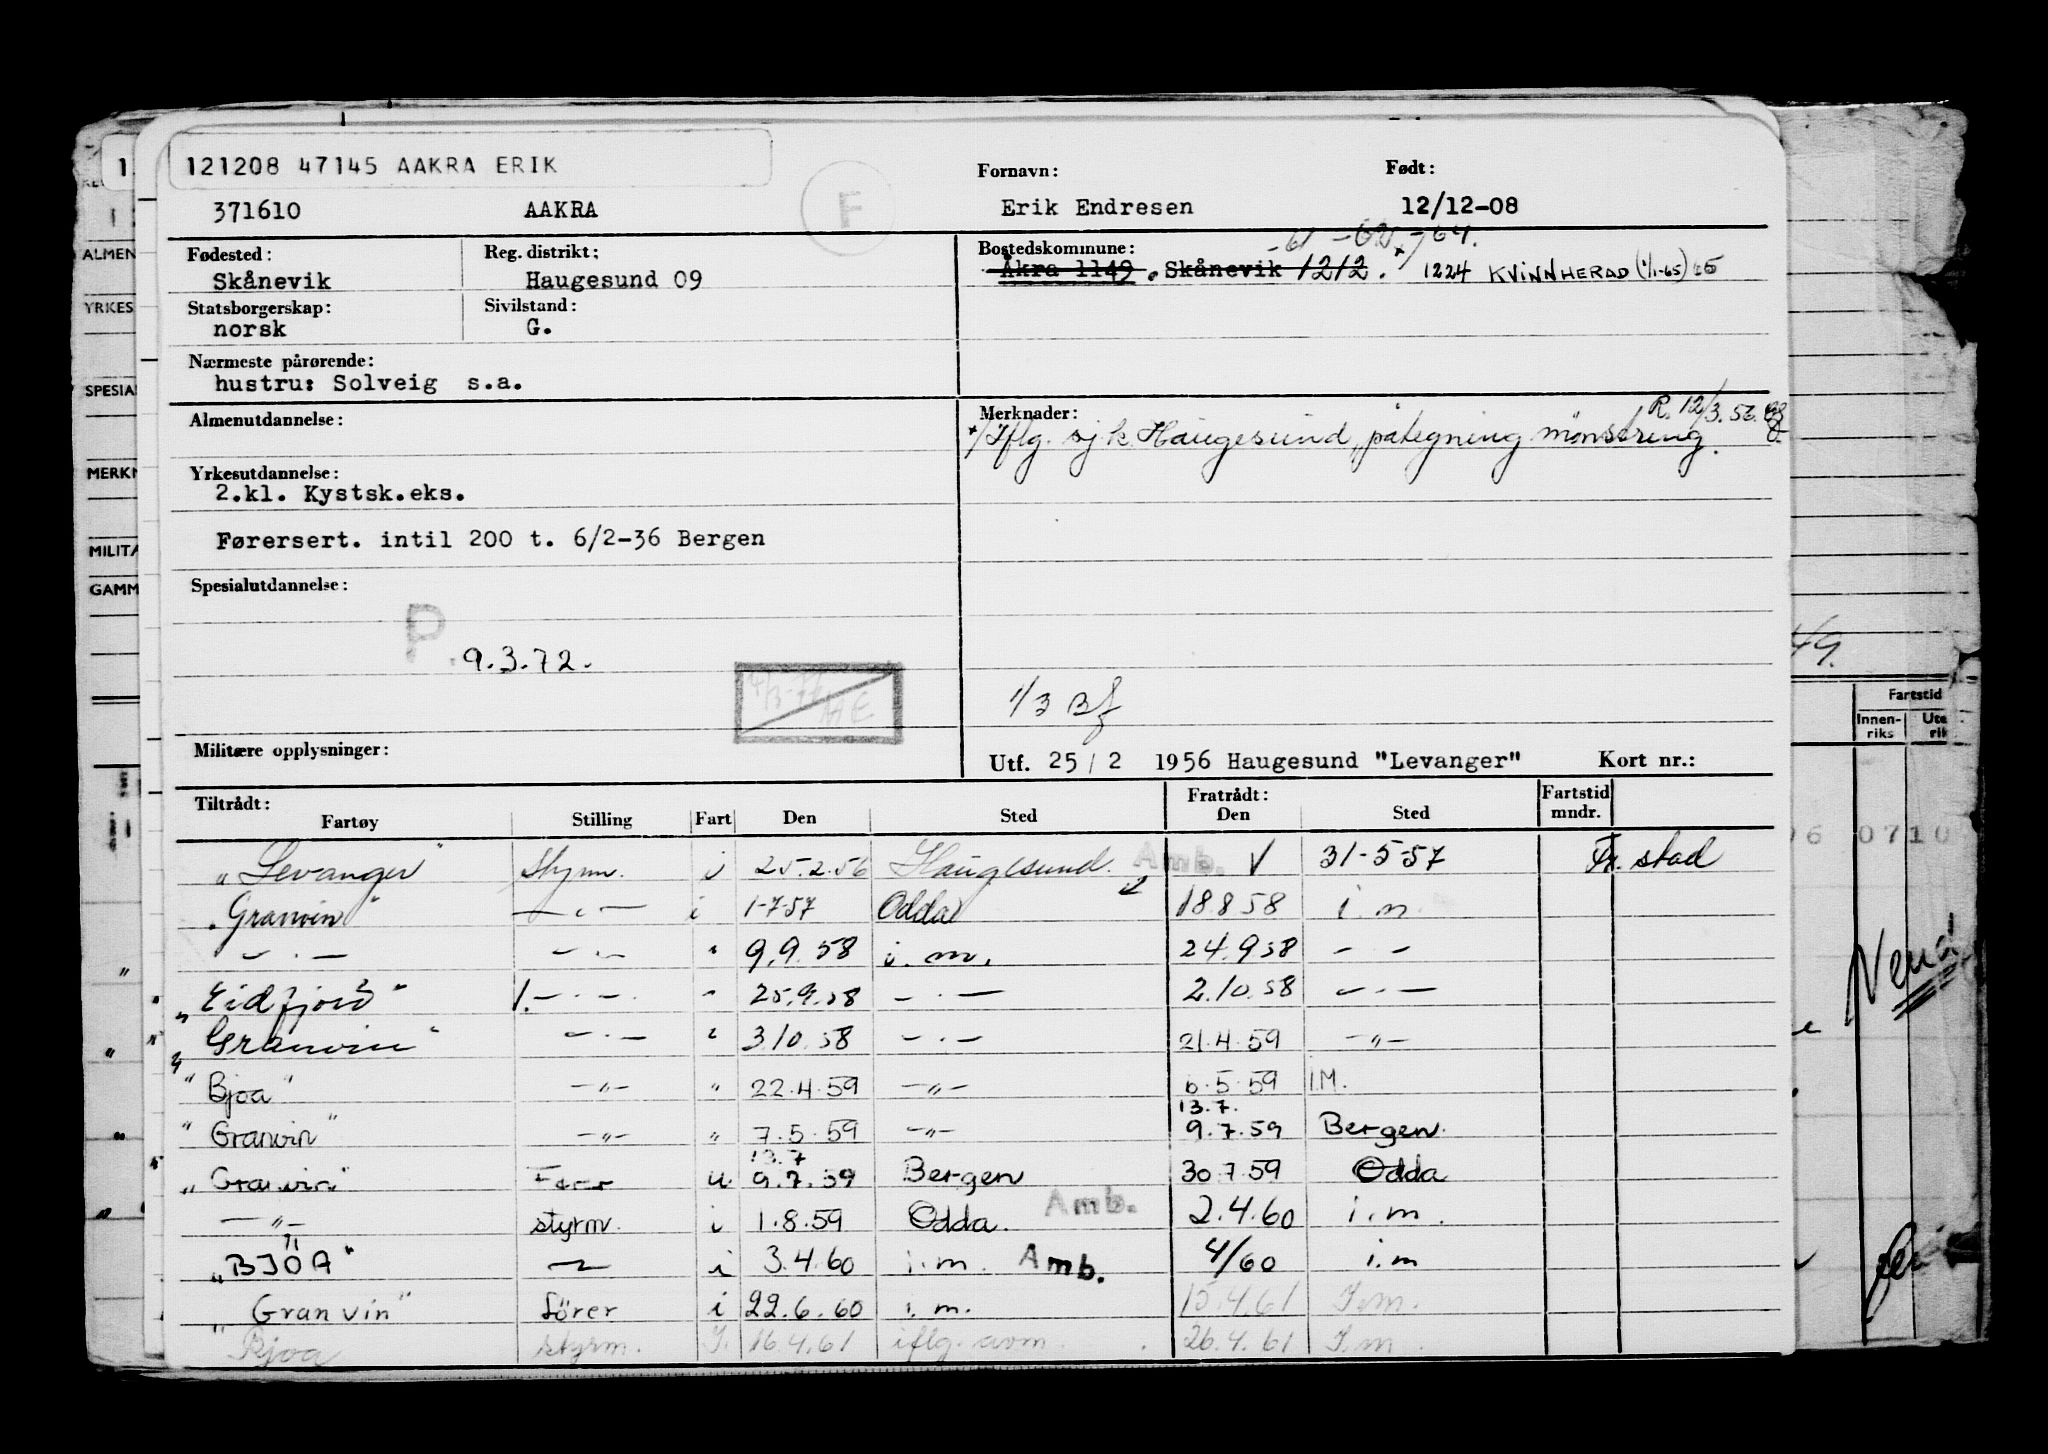 121208 47145 AAKRA ERIK
F
Fornavn:
Født:
371610 AAKRA Erik Endresen 12/12-08
Fødested: Reg. distrikt: Bostedskommune: -61 -62 -64.
Skånevik Haugesund 09 Åkra 1149 . Skånevik 1212. 1224 KVINNHERAD (1/1-65)
Statsborgerskap: Sivilstand:
norsk G.
Nærmeste pårørende:
hustru: Solveig s.a.
Almenutdannelse: Merknader: R. 12/3.56.
Iflg. sj.k. Haugesund, påtegning mønstring.
Yrkesutdannelse:
2.kl. Kystsk.eks.
Førersert. intil 200 t. 6/2-36 Bergen
Spesialutdannelse:
P. 9.3.72.
1/3 Bf
Militære opplysninger: Utf. 25/2 1956 Haugesund "Levanger" Kort nr.:
Tiltrådt: Fratrådt: Fartstid
Fartøy Stilling Fart Den Sted Den Sted mndr.
"Levanger" Styrm. i 25.2.56 Haugesund. Amb. √ 31-5-57 Fr. stad
"Granvin" — " — i 1-7-57 Odda 18.8.58 i.m.
— " — — " — " 9.9.58 i.m. 24.9.58 — —
"Eidfjord" 1. — " — " 25.9.58 — " — 2.10.58 — " —
"Granvin" — " — " 3.10.58 — " — 21.4.59 — " —
"Bjoa" — " — " 22.4.59 — " — 6.5.59 I.M.
13.7.
"Granvin" — " — " 7.5.59 — " — 9.7.59 Bergen.
13.7
"Granvin" u 9.7.59 Bergen 30.7.59 Odda
— " — styrm. i 1.8.59 Odda. Amb. 2.4.60 i.m.
"BJOA" — " — i 3.4.60 i.m. Amb. 4/60 i.m
"Granvin" fører i 22.6.60 i.m. 15.4.61 I.m.
"Bjoa styrm. I. 16.4.61 iflg. avm. 26.4.61 I.m.
ALMEN
YRKES
SPESIAL
MERKN
MILITÆ
GAMM
Fartstid
Innen-
riks
0710